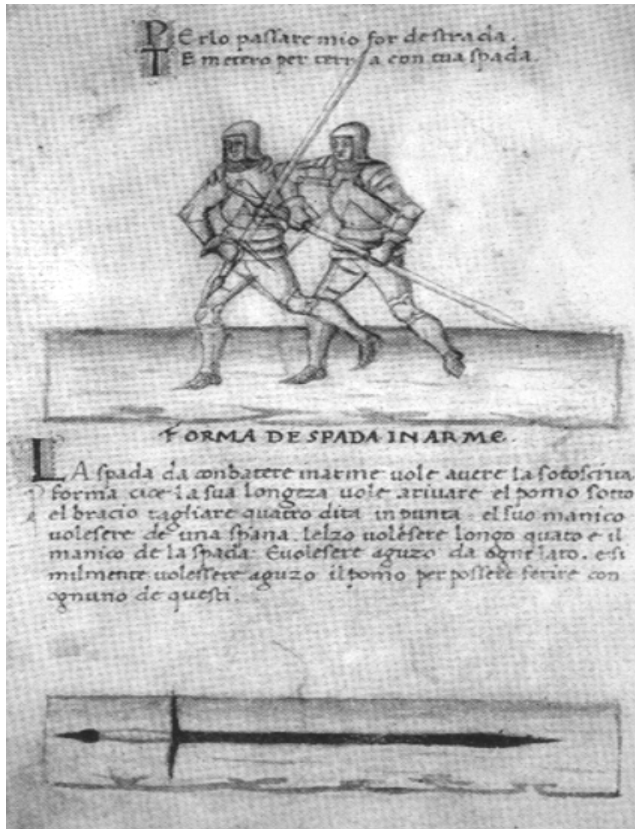 PErlo passare mio for de strada.
TE metero per terra con tua spada.
FORMA DE SPADA IN ARME.
LA spada da conbatere inarme vole avere la sotoscrita
forma cioe la sua longeza vole arivare el pomo sotto
el bracio tagliare quatro dita in punta. el suo manico
volesere de una spana. lelzo volesere longo quato e il
manico de la spada. Evolesere aguzo da ogne lato. e si
milmente volessere aguzo il pomo per possere ferire con
ognuno de questi.